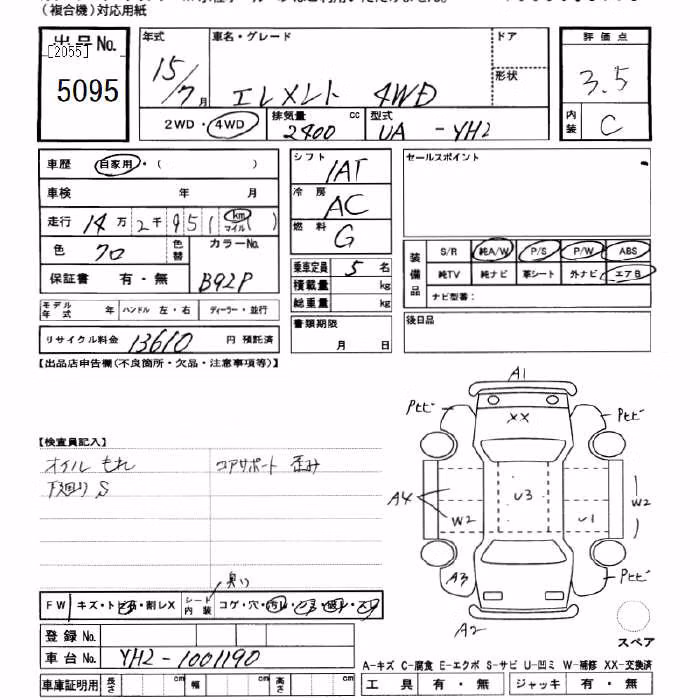 (複合機)対応用紙
出品No.
[2055]
5095
年式
15/7月
車名・グレード
エレメント 4WD
ドア
形状
2WD・4WD
排気量 2400 cc
型式 UA - YH2
評価点
3.5
内装 C
車歴 自家用・( )
車検 年 月
走行 14万2千951 (km マイル)
色 クロ 色替
カラーNo. B92P
保証書 有・無
モデル年式 年 ハンドル 左・右 ディーラー・並行
リサイクル料金 13610 円 預託済
シフト IAT
冷房 AC
燃料 G
乗車定員 5名
積載量 kg
総重量 kg
書類期限
月 日
セールスポイント
装備品
S/R 純A/W P/S P/W ABS
純TV 純ナビ 革シート 外ナビ エアB
ナビ型番:
後日品
【出品店申告欄(不良箇所・欠品・注意事項等)】
【検査員記入】
オイル もれ コアサポート 歪み
下廻り S
臭い
FW キズ・トビ・割レX シート内装 コゲ・穴・汚レ
登録No.
車台No. YH2-1001190
車庫証明用 長さ cm 幅 cm 高さ cm
A1
Pセビ Pセビ
XX
A4 W2 U3 U1 W2
A3 Pセビ
A2
スペア
A-キズ C-腐食 E-エクボ S-サビ U-凹ミ W-補修 XX-交換済
工具 有・無 ジャッキ 有・無